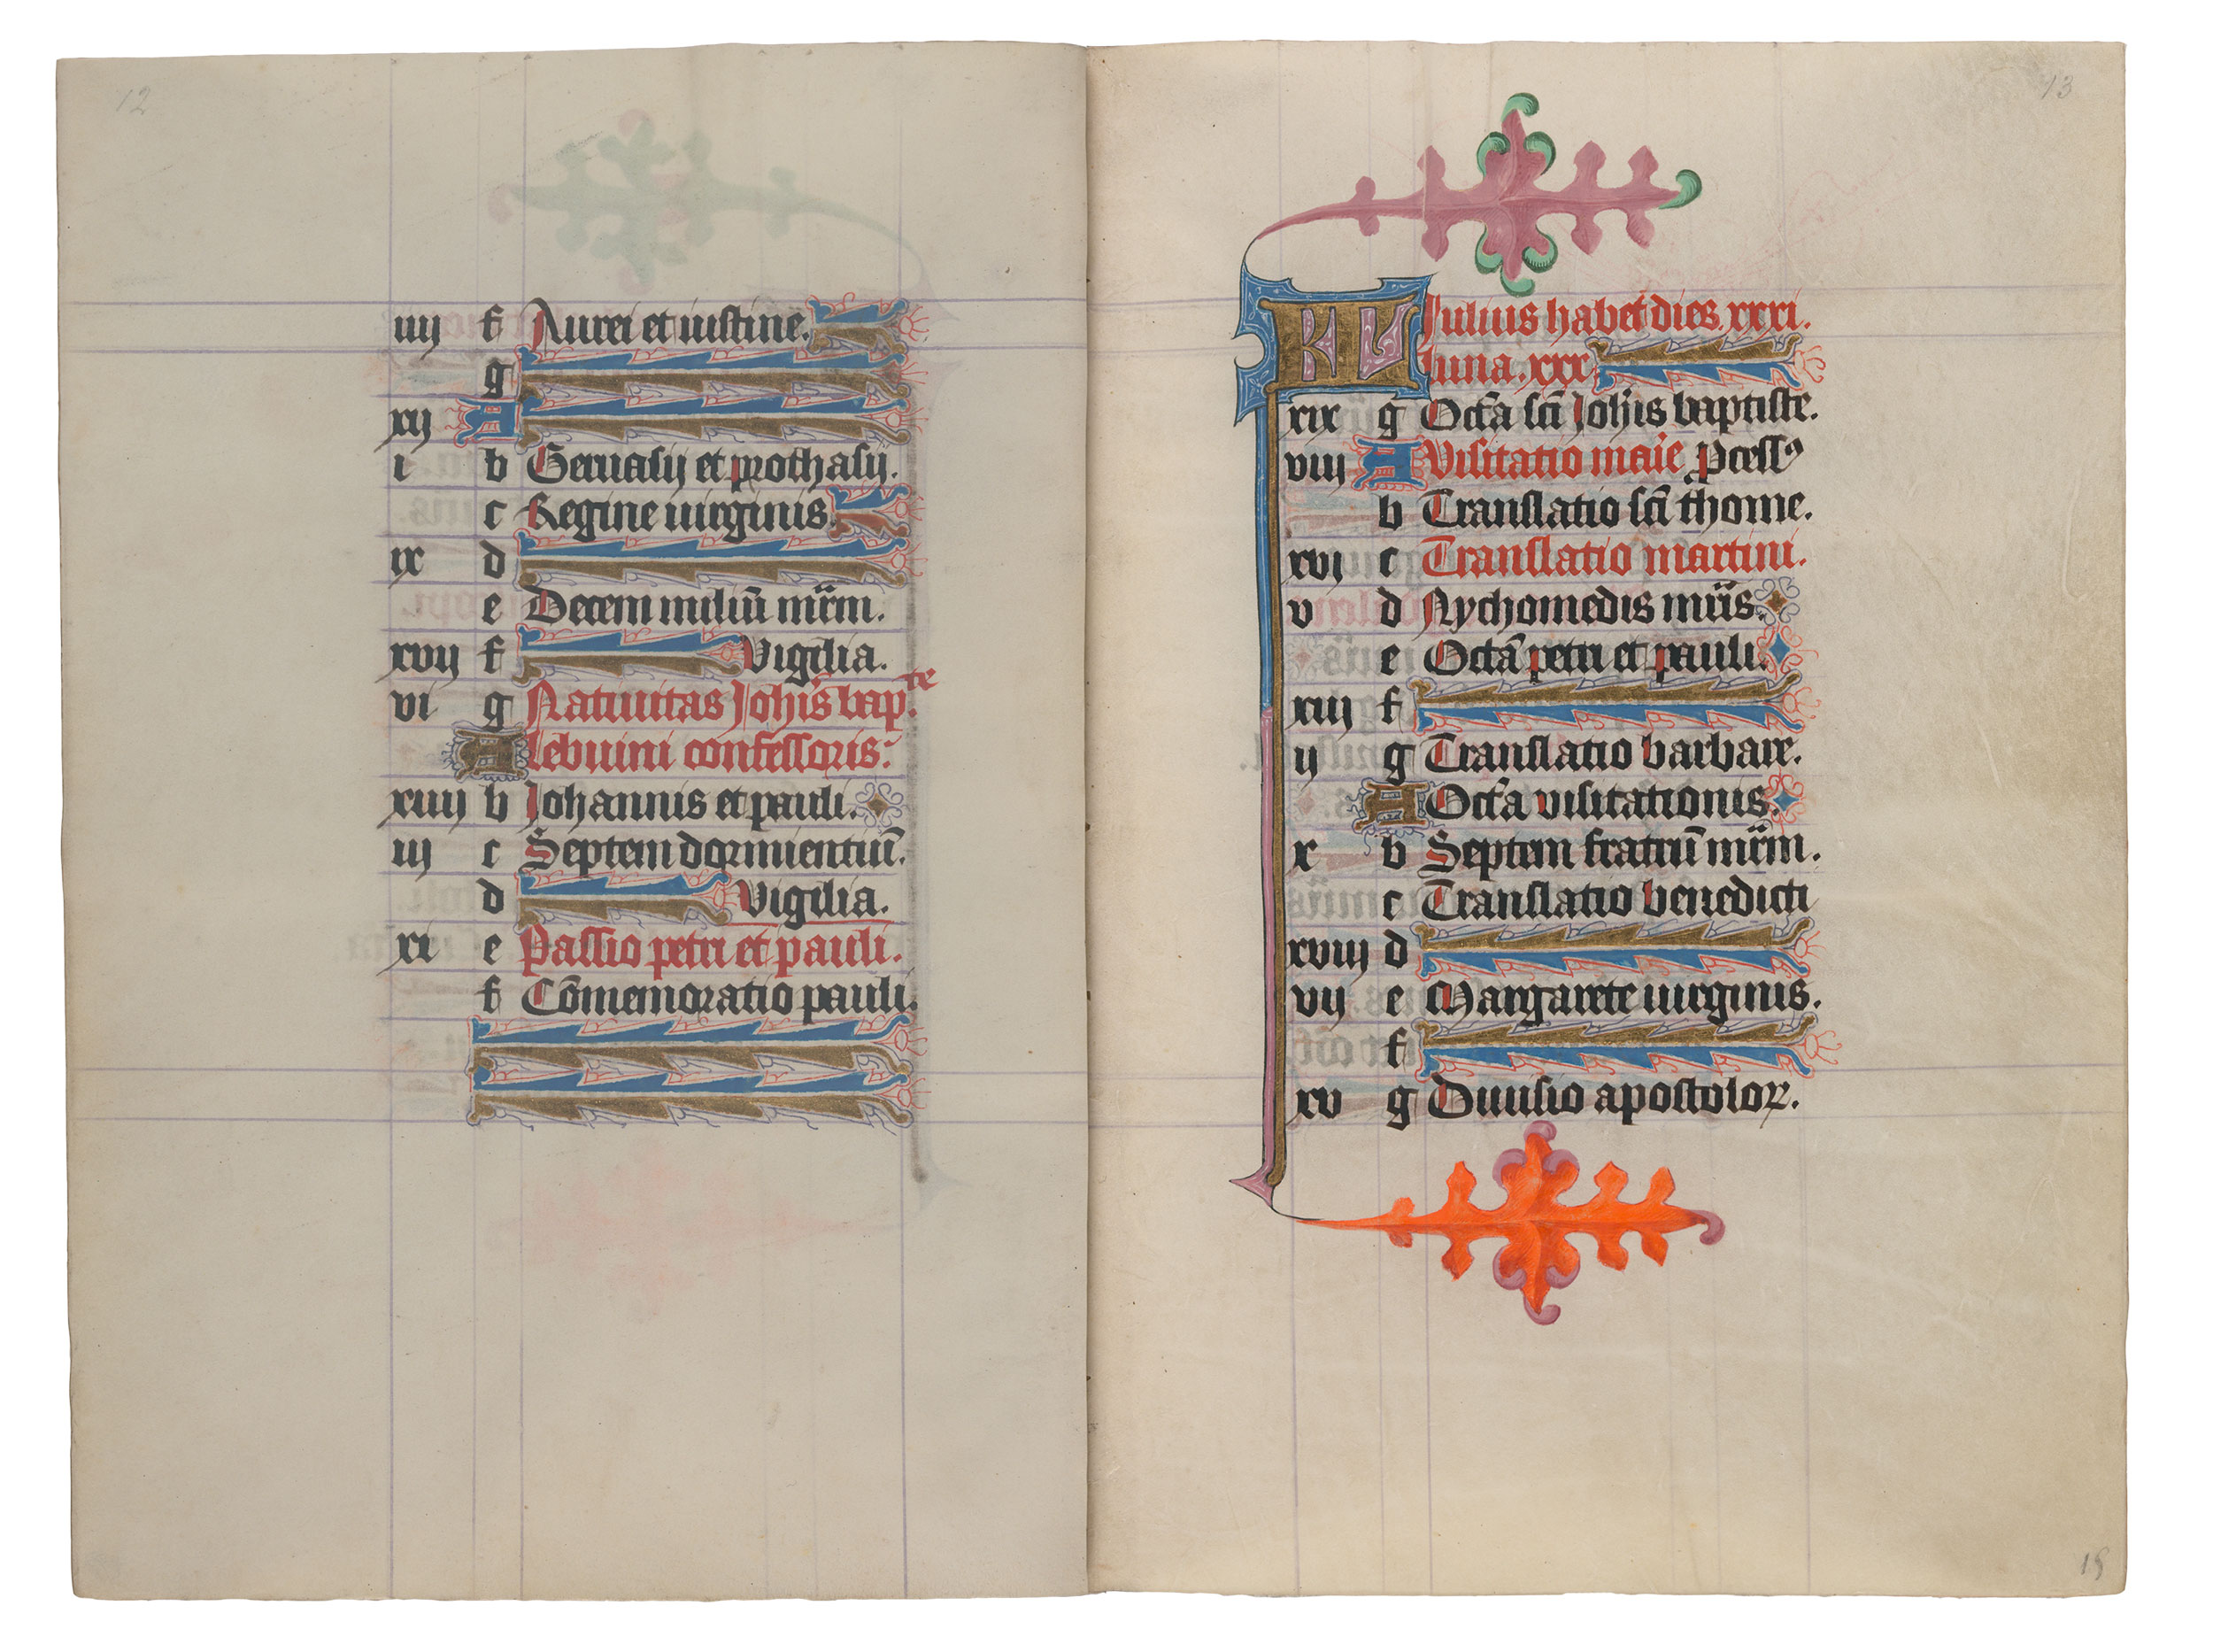 12
iiij f Aurei et iustine.
g
xij A
i b Geruasij et prothasij.
c Regine uirginis.
ix d
e Decem miliū mr̄m.
xvij f Vigilia.
vi g Natiuitas Johīs bap.te
A Lebuini confessoris.
xiiij b Johannis et pauli.
iij c Septem dormientiū.
d Vigilia.
xi e Passio petri et pauli.
f Cōmemoratio pauli.
13
KL Julius habet dies. xxxi.
luna. xxx.
xix g Octa sci Johīs baptiste.
viij A Visitatio maīe Pcess9
b Translatio sci thome.
xvj c Translatio martini.
v d Nychomedis mr̄is.
e Octā petri et pauli.
xiij f
ij g Translatio barbare.
A Octa visitationis.
x b Septem fratrū mr̄m.
c Translatio benedicti
xviij d
vij e Margarete uirginis.
f
xv g Diuisio apostoloꝝ.